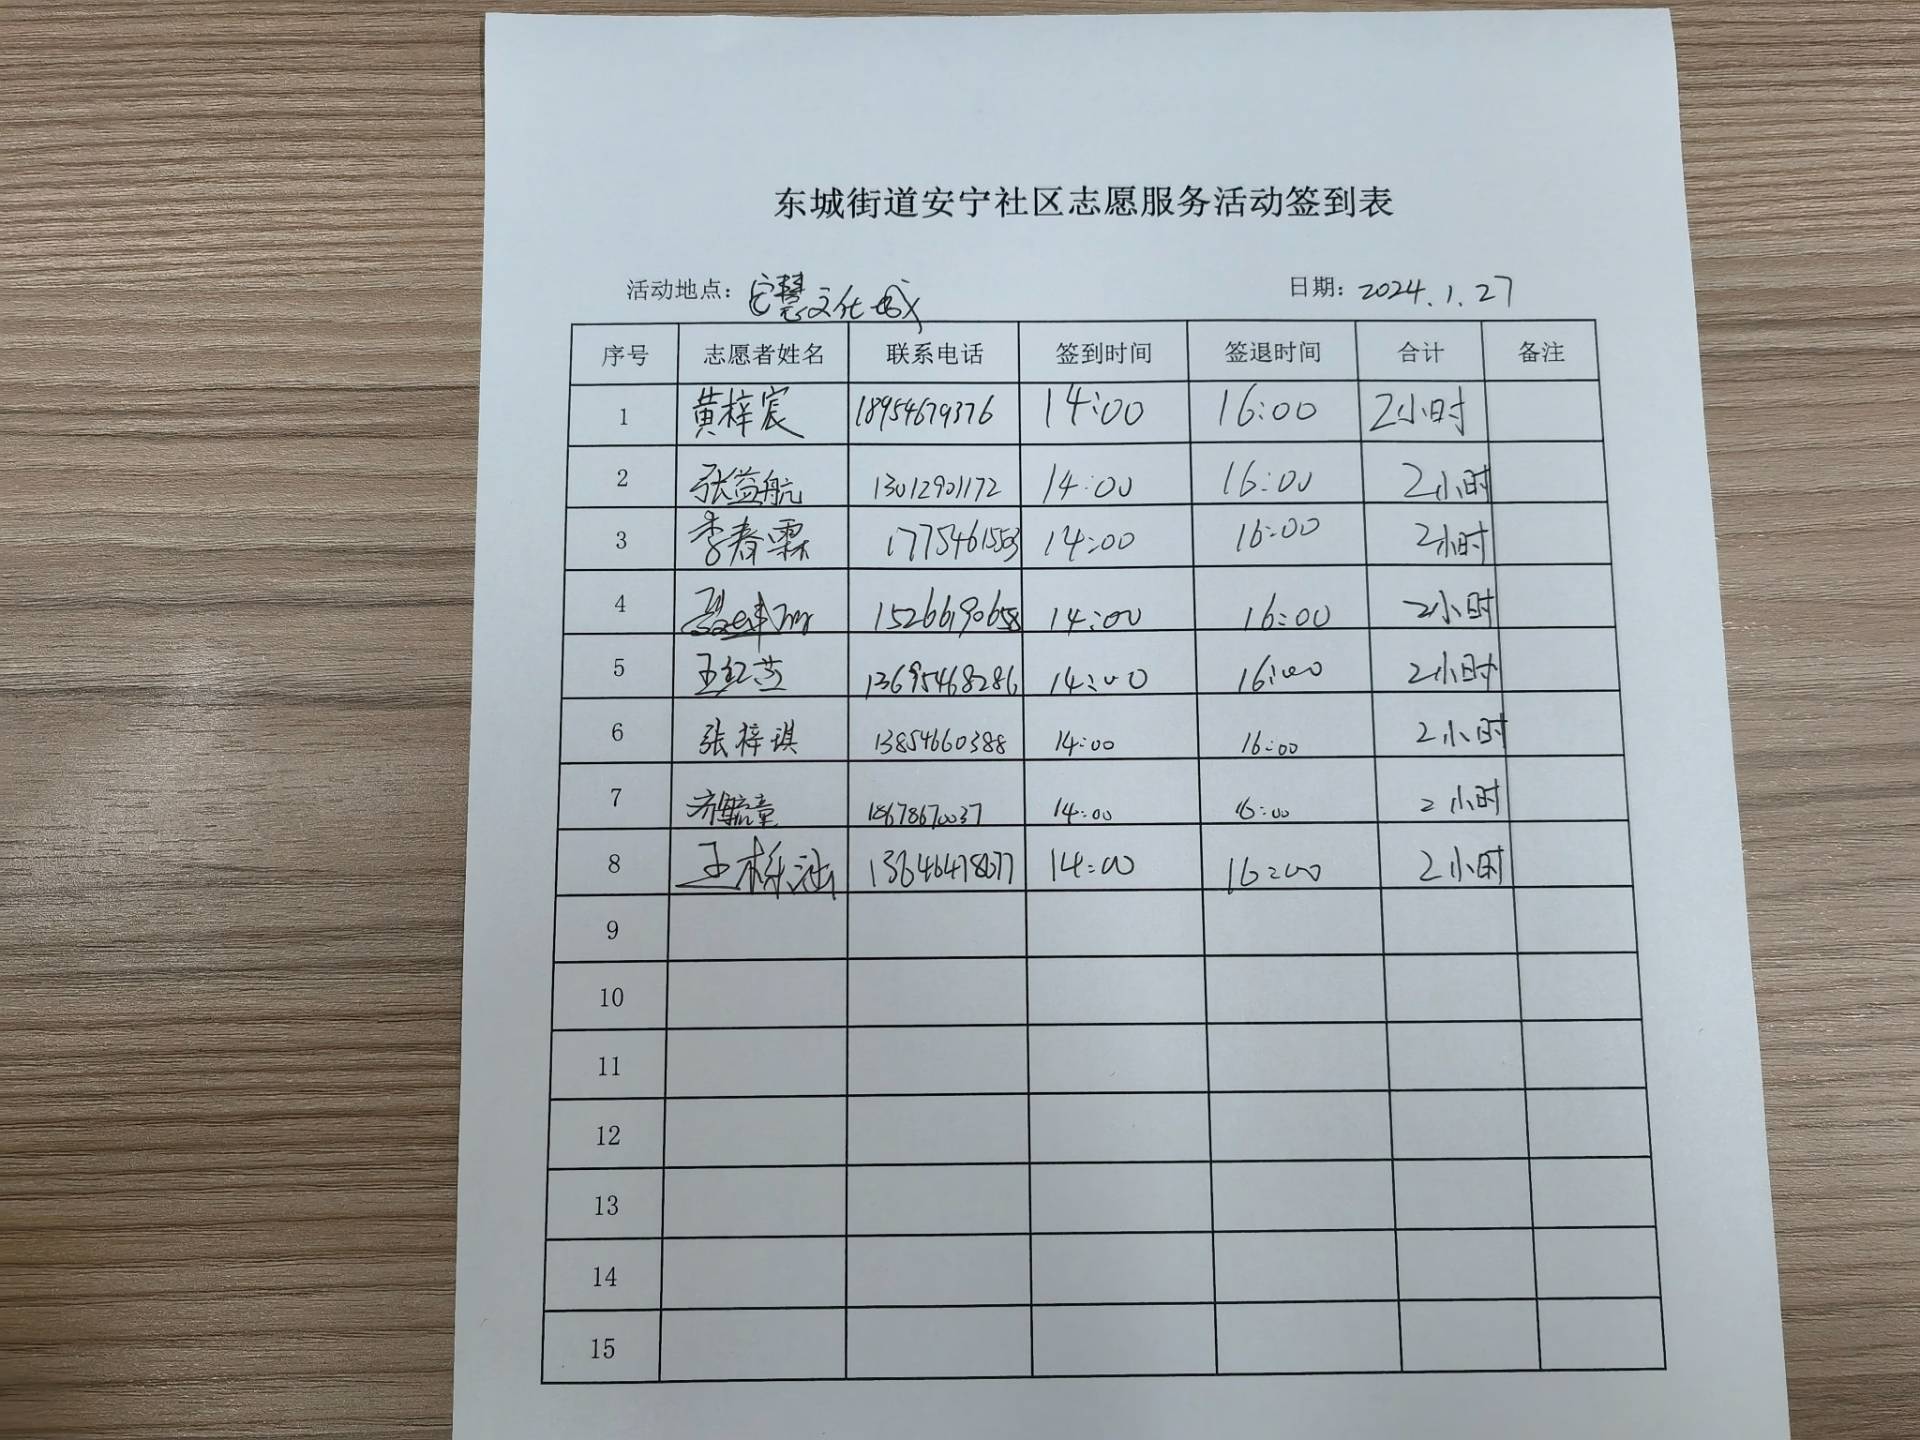 东城街道安宁社区志愿服务活动签到表
活动地点：安慧文化城 日期：2024.1.27
序号 志愿者姓名 联系电话 签到时间 签退时间 合计 备注
1 黄梓宸 18954679376 14:00 16:00 2小时
2 张益航 13012901172 14:00 16:00 2小时
3 李春霖 1775461553 14:00 16:00 2小时
4 15266190658 14:00 16:00 2小时
5 王红芸 13695468286 14:00 16:00 2小时
6 张梓琪 13854660388 14:00 16:00 2小时
7 18678670037 14:00 16:00 2小时
8 王梓涵 14:00 16:00 2小时
9
10
11
12
13
14
15